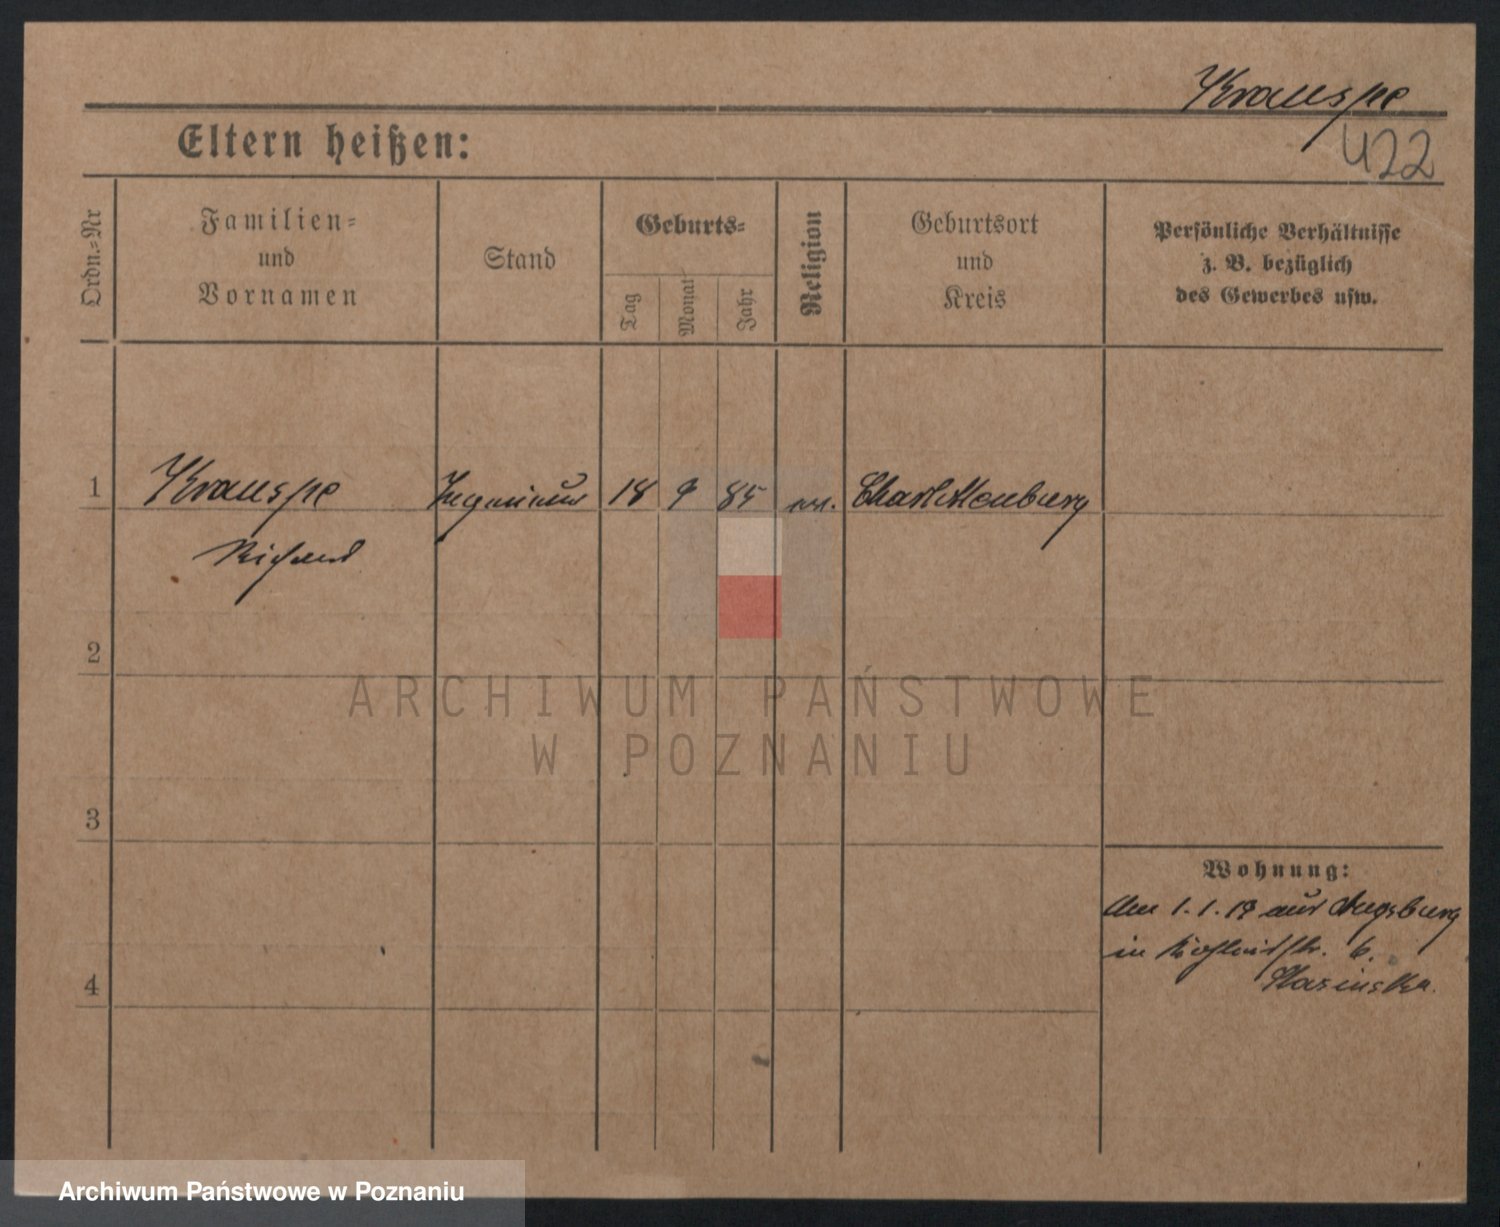 Krauspe
422
Eltern heißen:
Ordn.=Nr
Familien=
und
Vornamen
Stand
Geburts=
Tag
Monat
Jahr
Religion
Geburtsort
und
Kreis
Persönliche Verhältnisse
z. B. bezüglich
des Gewerbes usw.
1
Krauspe
Ingenieur
18
9
85
ev.
Charlottenburg
Richard
2
ARCHIWUM PAŃSTWOWE
W POZNANIU
3
Wohnung:
Am 1.1.19 aus Augsburg
in 6.
4
Archiwum Państwowe w Poznaniu